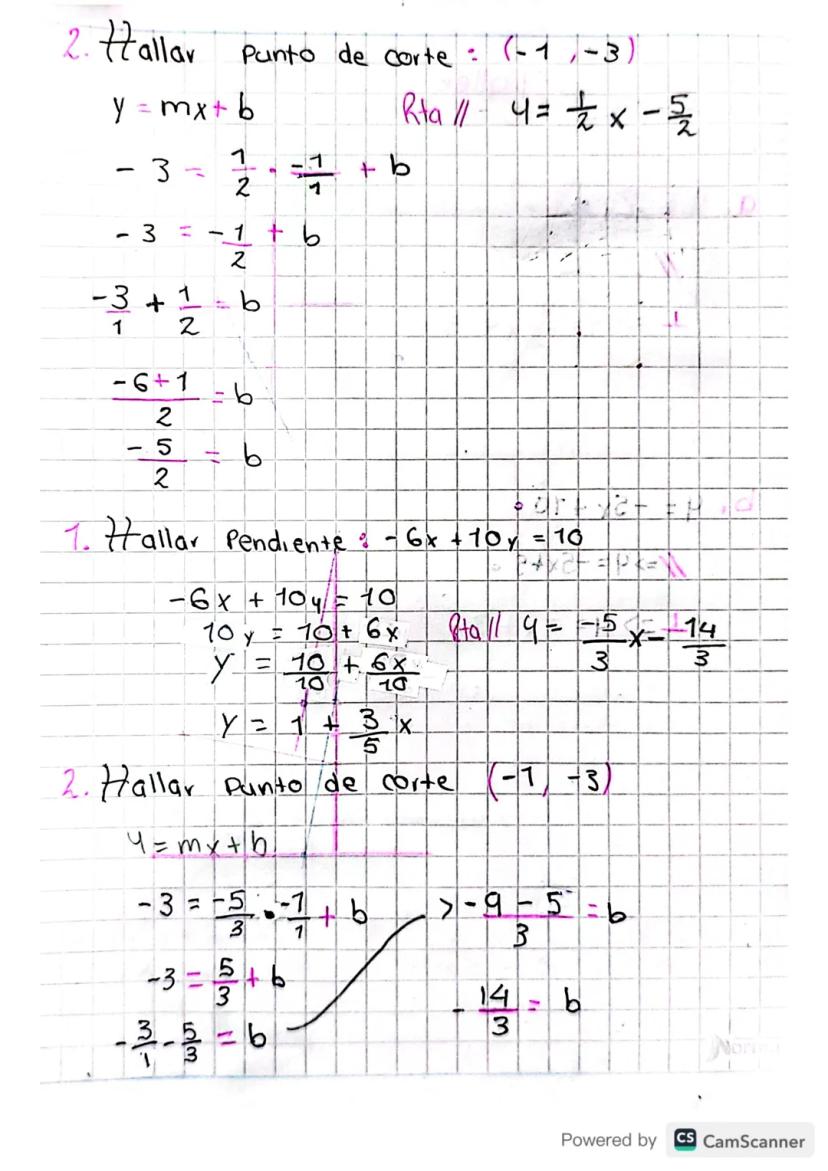 2. Hallar punto de corte: (-1, -3)
y = mx + b
Rta // y = 1/2 x - 5/2
- 3 = 1/2 · -1/1 + b
- 3 = -1/2 + b
-3/1 + 1/2 = b
-6+1/2 = b
-5/2 = b
1. Hallar Pendiente: -6x + 10y = 10
-6x + 10y = 10
10y = 10 + 6x
Rta // y = -5/3 x - 14/3
y = 10/10 + 6x/10
y = 1 + 3/5 x
2. Hallar punto de corte (-1, -3)
y = mx + b
-3 = -5/3 · -1/1 + b
-3 = 5/3 + b
-3/1 - 5/3 = b
> -9 - 5/3 = b
-14/3 = b
Powered by CS CamScanner